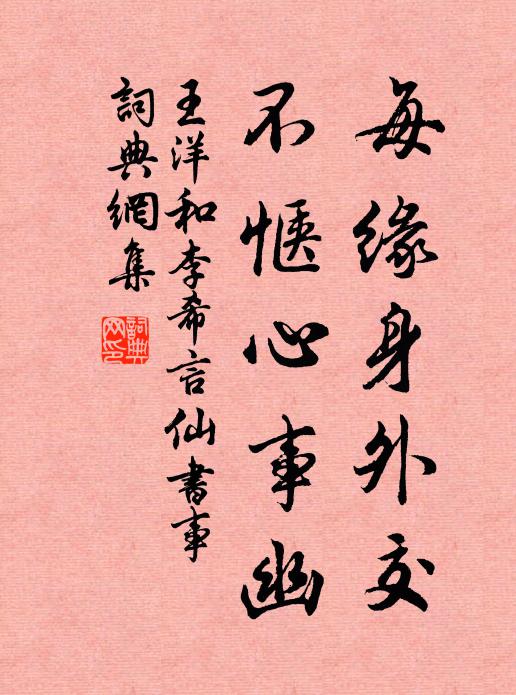 每緣身外交
不愜心事幽
王洋和李希言仙書事
詞典網集
詞典網印